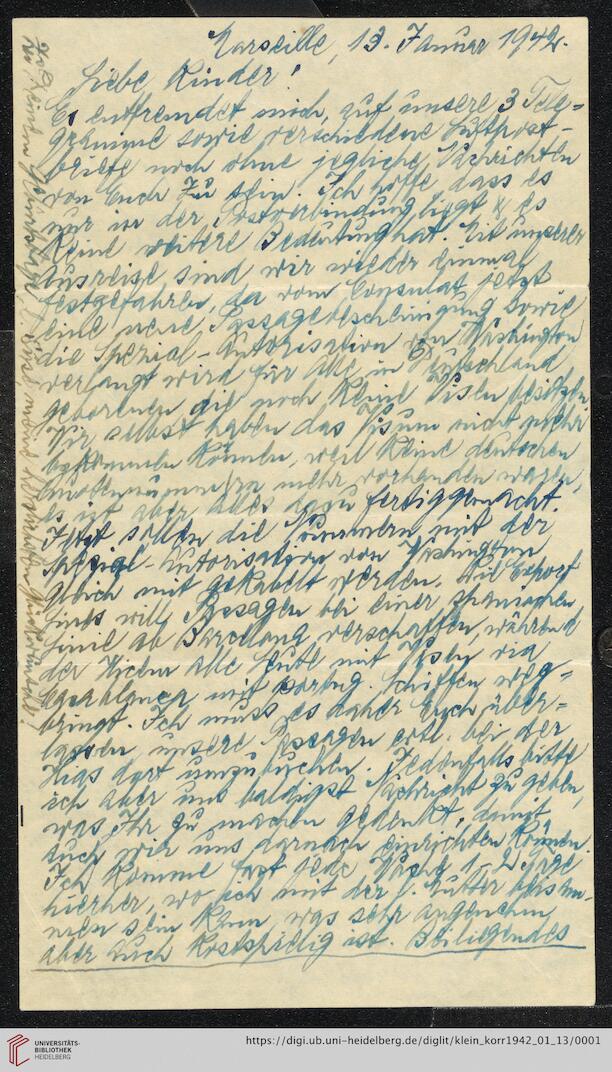 Marseille, 13. Januar 1942.
Liebe Kinder!
Es entfremdet mich, auf unsere 3 Tele-
gramme sowie verschiedene Luftpost-
briefe noch ohne jegliche Nachrichten
von Euch zu sein. Ich hoffe, dass es
nur in der Postverbindung liegt & es
keine weitere Bedeutung hat. Mit unserer
Ausreise sind wir wieder einmal
festgefahren, da vom Consulat jetzt
eine neue Passagebescheinigung sowie
die Spezial-Autorisation von Washington
verlangt wird für alle in Deutschland
geborenen die noch keine Visen besitzen.
Wir selbst haben das Visum nicht mehr
bekommen können, weil keine deutschen
mehr vorhanden waren,
es ist aber alles dazu fertiggemacht.
Jetzt sollen die Nummern mit der
Spezial-Autorisation von Washington
gleich mit gekabelt werden. Die
will Passagen bei einer spanischen
Linie ab Barcelona verschaffen, während
der Hicem alle Leute mit Visen via
Casablanca mit portug. Schiffen weg-
bringt. Ich muss es daher Euch über-
lassen, unsere Passagen evtl. bei der
Hias dort umzubuchen. Jedenfalls bitte
ich aber uns baldigst Nachricht zu geben,
was Ihr zu machen gedenkt, damit
auch wir uns darnach einrichten können.
Ich komme fast jede Woche 1-2 Tage
hierher, wo ich mit der l. Mutter beisam-
men sein kann, was sehr angenehm,
aber auch kostspielig ist. Beiliegendes
UNIVERSITÄTS-
BIBLIOTHEK
HEIDELBERG
https://digi.ub.uni-heidelberg.de/diglit/klein_korr1942_01_13/0001